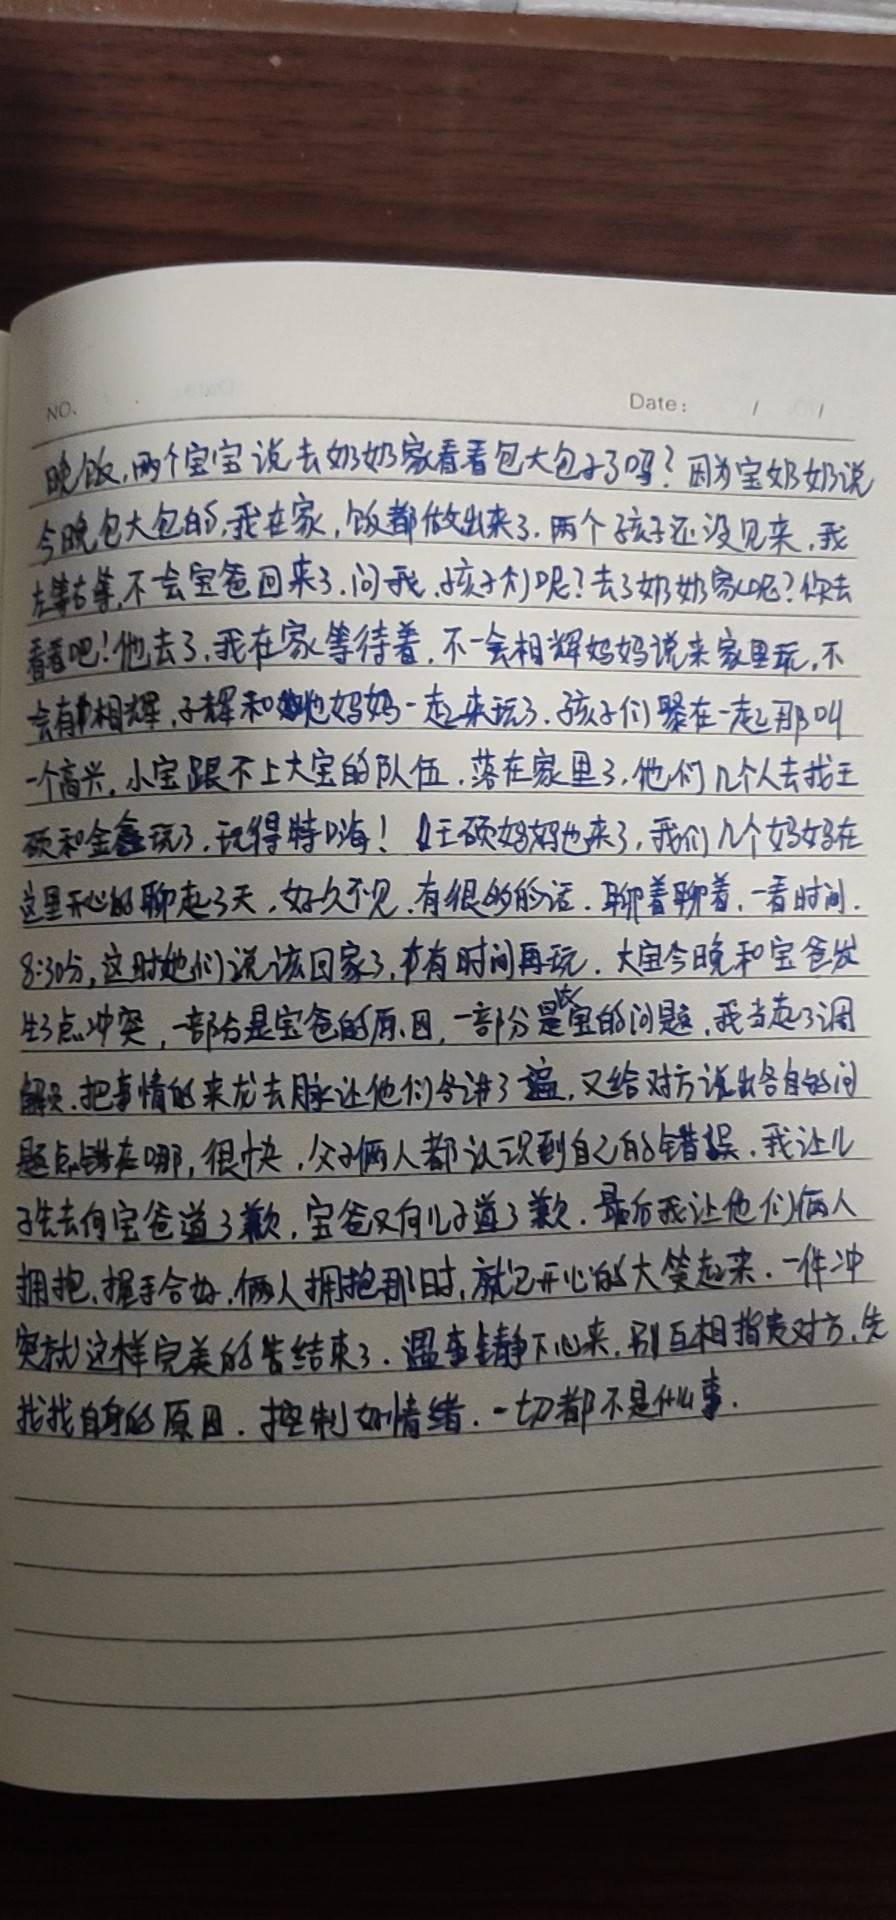 NO.
Date: / /
晚饭,两个宝宝说去奶奶家看看包大包子了吗?因为宝奶奶说
今晚包大包的,我在家,饭都做出来了.两个孩子还没见来,我
左等右等,不一会宝爸回来了.问我,孩子们呢?去了奶奶家呢?你去
看看吧!他去了,我在家等待着,不一会相辉妈妈说来家里玩,不
会有相辉,子辉和他妈妈一起来玩了.孩子们聚在一起那叫
一个高兴,小宝跟不上大宝的队伍,落在家里了,他们几个人去找王
硕和金鑫玩了,玩得特嗨!王硕妈妈也来了,我们几个妈妈在
这里开心的聊起了天,好久不见,有很多的话.聊着聊着,一看时间.
8:30分,这时她们说该回家了,有时间再玩.大宝今晚和宝爸发
生了点冲突,一部分是宝爸的原因,一部分是大宝的问题,我当起了调
解员.把事情的来龙去脉让他们各讲了遍,又给对方说出各自的问
题点错在哪,很快,父子俩人都认识到自己的错误,我让儿
子先去向宝爸道了歉,宝爸又向儿子道了歉.最后我让他们俩人
拥抱、握手合好,俩人拥抱那时,就已开心的大笑起来.一件冲
突就这样完美的告结束了.遇事静下心来,别互相指责对方,先
找找自身的原因.控制好情绪.一切都不是什么事.